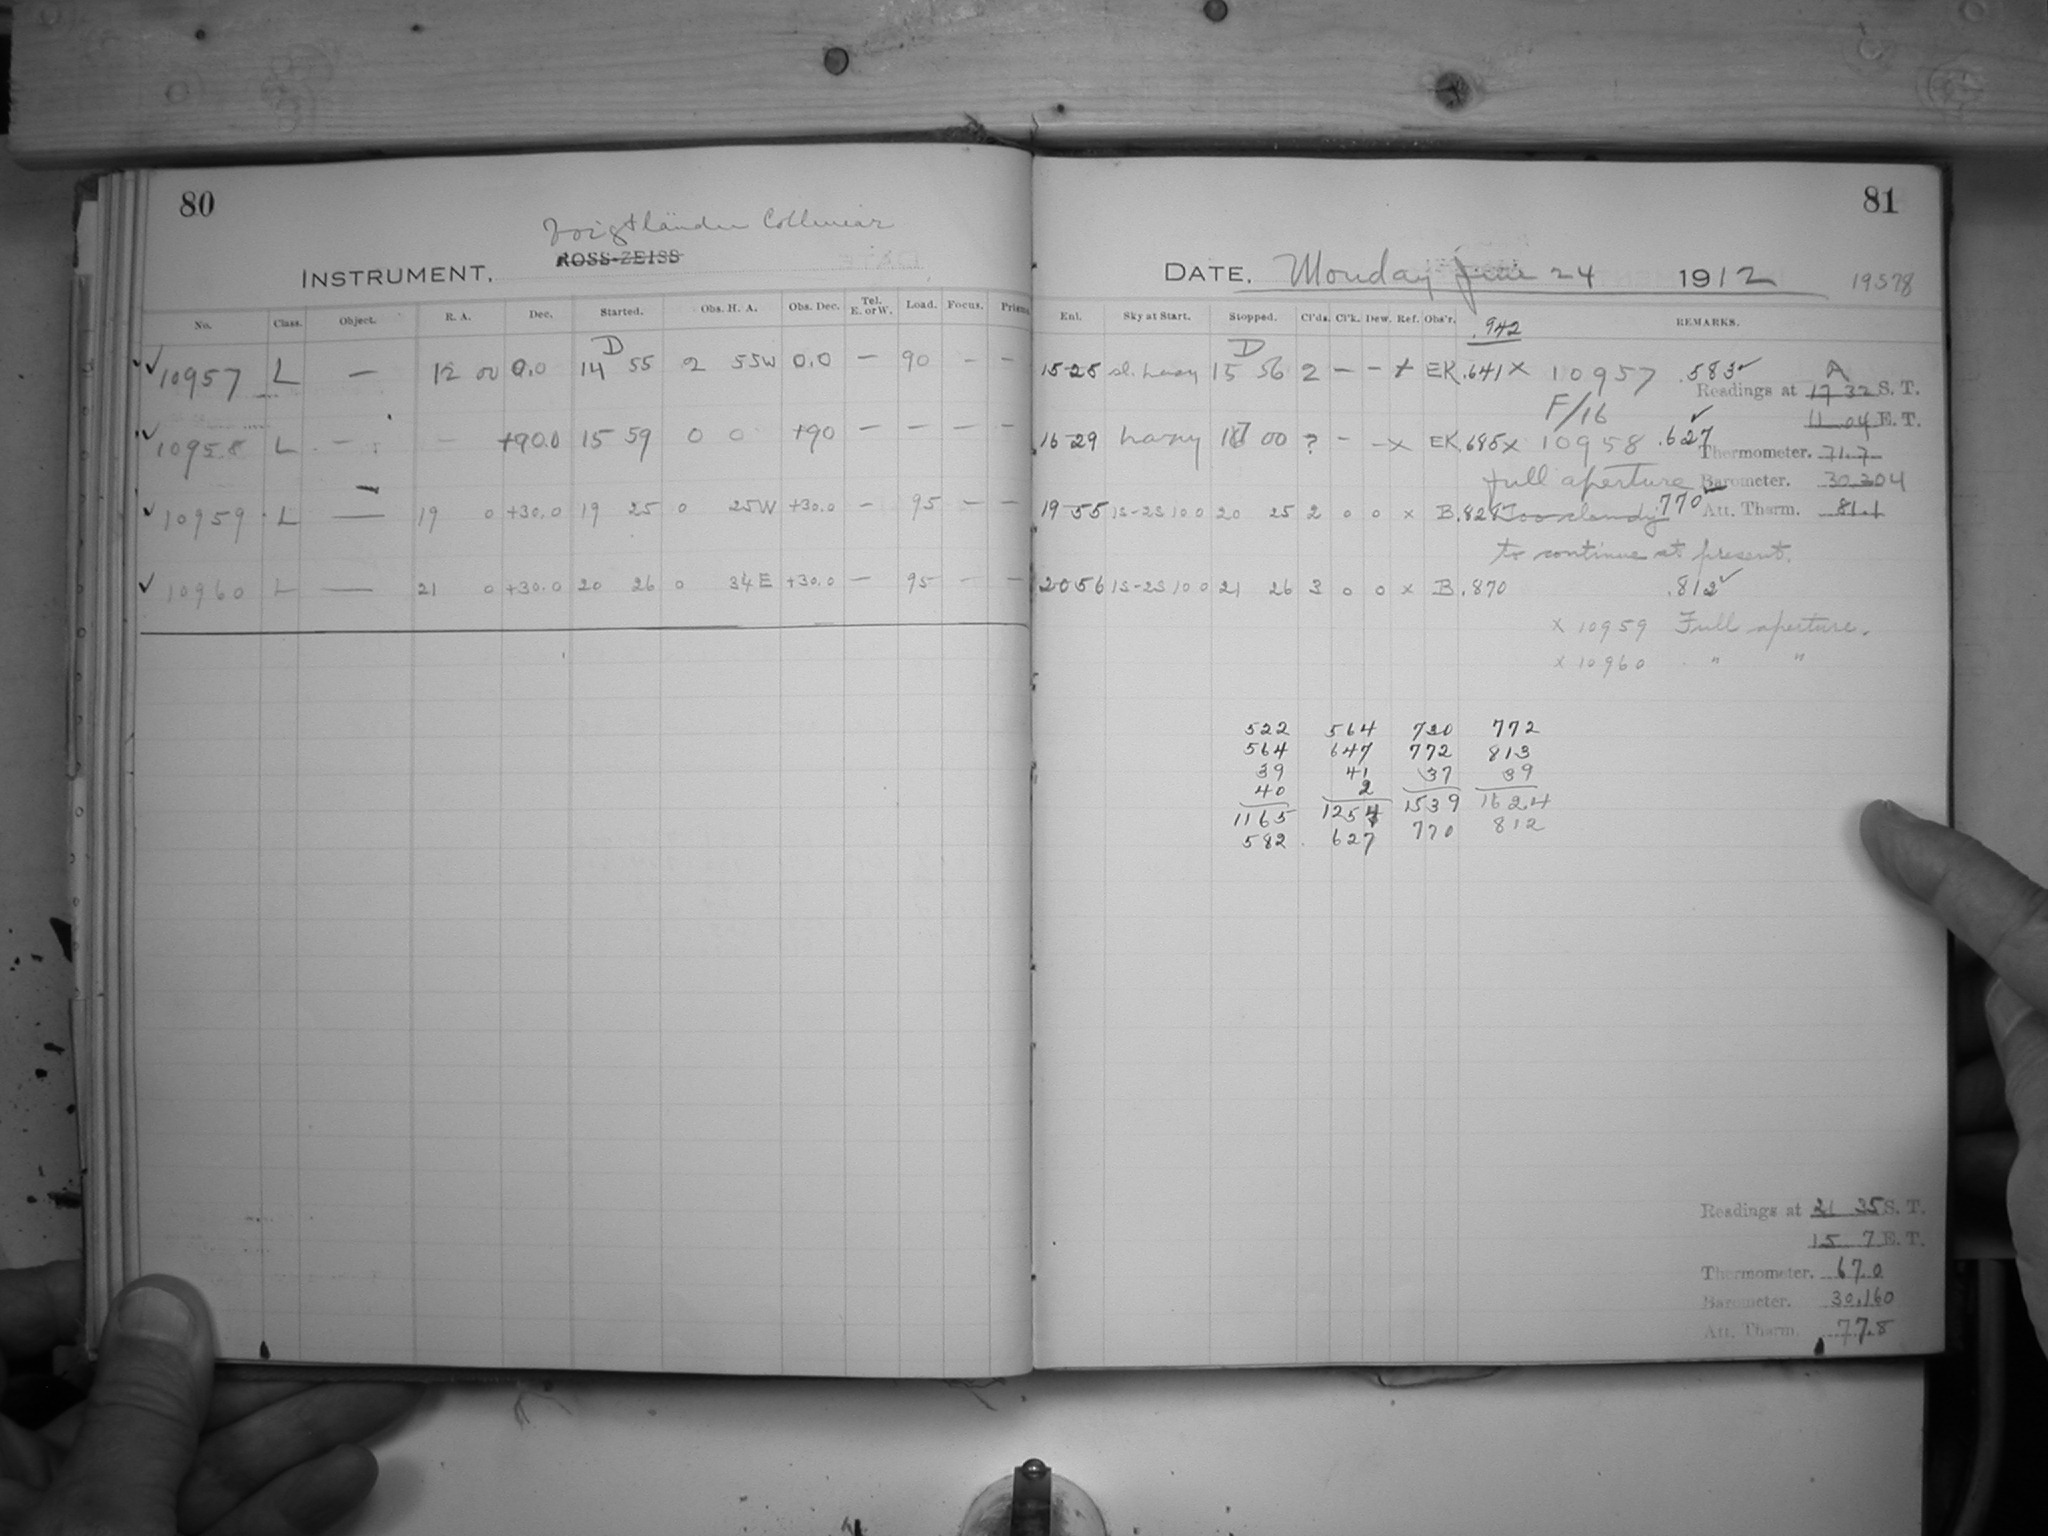 80
Voigtländer Collinear
INSTRUMENT. ROSS-ZEISS
No. Class. Object. R. A. Dec. Started. Obs. H. A. Obs. Dec. Tel. E. or W. Load. Focus. Prism
D
✓ 10957 L — 12 00 0.0 14 55 2 55W 0.0 — 90 - -
✓ 10958 L - - +90.0 15 59 0 0 +90 — — — —
✓ 10959 L — 19 0 +30.0 19 25 0 25W +30.0 - 95 - -
✓ 10960 L — 21 0 +30.0 20 26 0 34E +30.0 — 95 - -
81
DATE, Monday June 24 1912 19578
Enl. Sky at Start. Stopped. Cl'ds. Cl'k. Dew. Ref. Obs'r. REMARKS.
.942
D
15-25 sl. hazy 15 56 2 - - + EK .641 x 10957 .583 ✓ A
Readings at 17 32 S. T.
F/16 11 04 E. T.
16-29 hazy 17 00 ? - - x EK .685 x 10958 .627 ✓
Thermometer. 71.7
full aperture Barometer. 30.204
19-55 1s-2s 100 20 25 2 0 0 x B .828 Too cloudy .770 ✓ Att. Therm. 81.1
to continue at present.
20 56 1s-2s 100 21 26 3 0 0 x B .870 .812 ✓
x 10959 Full aperture.
x 10960 " "
522 564 730 772
564 647 772 813
39 41 37 39
40 2
1165 1254 1539 1624
582 627 770 812
Readings at 21 35 S. T.
15 7 E. T.
Thermometer. 67.0
Barometer. 30.160
Att. Therm. 77.8